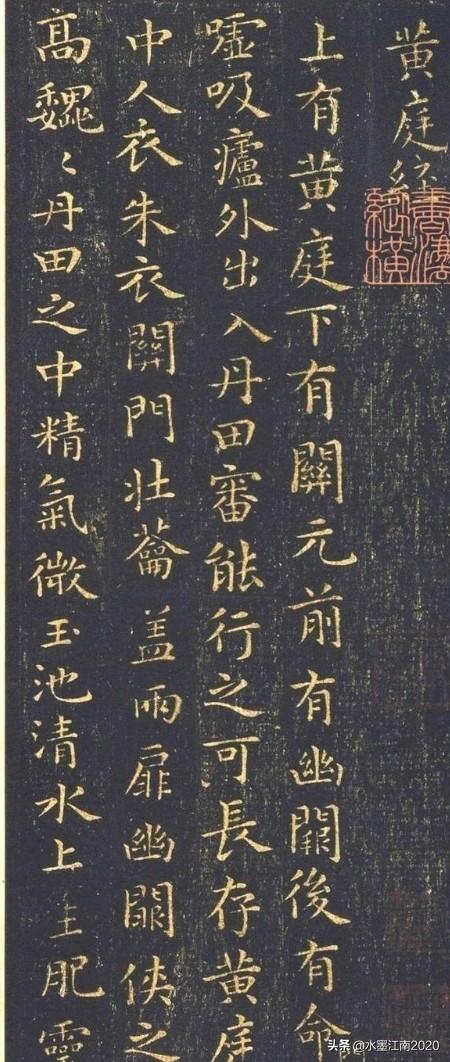 黄庭經
上有黄庭下有關元前有幽闕後有命
嘘吸廬外出入丹田審能行之可長存黄庭
中人衣朱衣關門壯蘥盖兩扉幽闕俠之
高魏〻丹田之中精氣微玉池清水上生肥靈
头条 @水墨江南2020